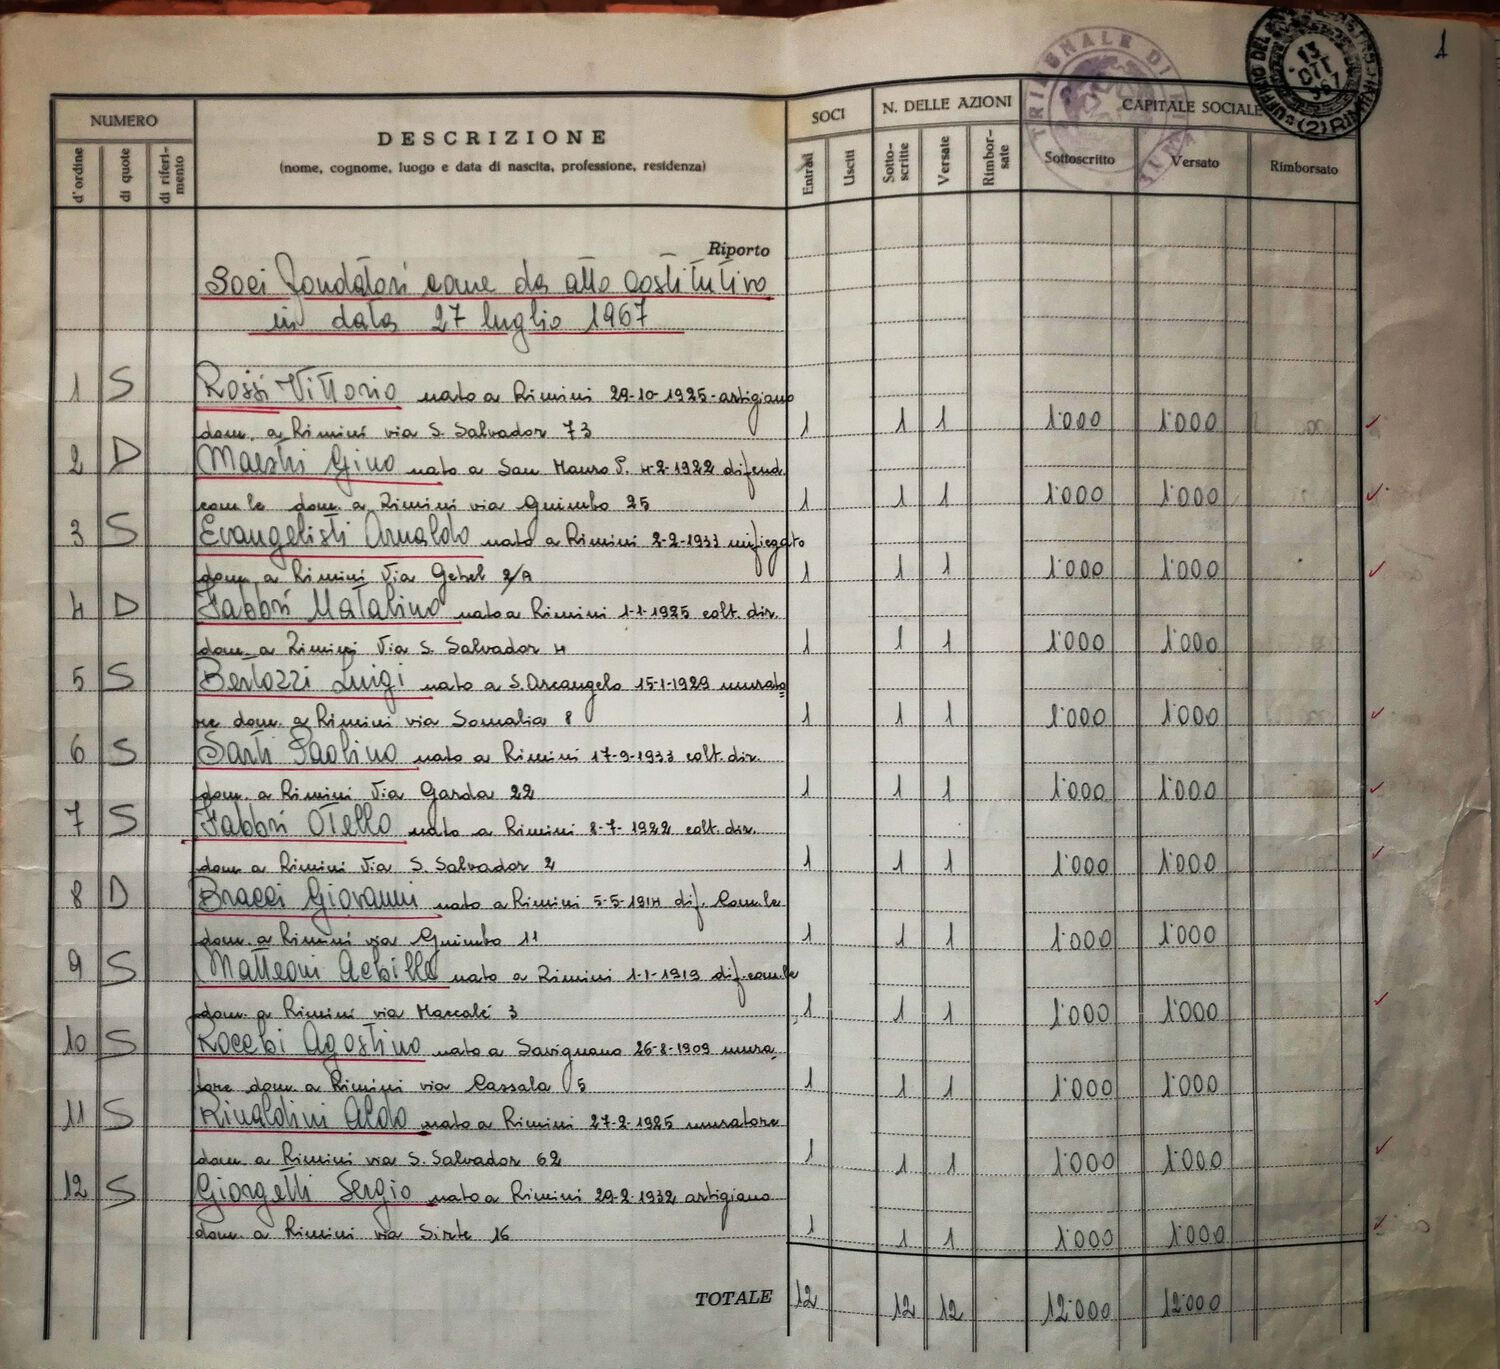 1
TRIBUNALE DI RIMINI
UFFICIO DEL REGISTRO RIMINI (2)
NUMERO
d'ordine
di quote
di riferi-
mento
DESCRIZIONE
(nome, cognome, luogo e data di nascita, professione, residenza)
SOCI
Entrati
Usciti
N. DELLE AZIONI
Sotto-
scritte
Versate
Rimbor-
sate
CAPITALE SOCIALE
Sottoscritto
Versato
Rimborsato
Riporto
Soci fondatori come da atto costitutivo
in data 27 luglio 1967
1 S Rossi Vittorio nato a Rimini 29-10-1925-artigiano
dom. a Rimini via S. Salvador 73 1 1 1 1'000 1'000
2 D Maestri Gino nato a San Mauro P. 4-2-1922 difend.
com.le dom. a Rimini via Quimbo 25 1 1 1 1'000 1'000
3 S Evangelisti Arnaldo nato a Rimini 2-2-1933 impiegato
dom. a Rimini Via Gebel 2/A 1 1 1 1'000 1'000
4 D Fabbri Natalino nato a Rimini 1-1-1925 colt. dir.
dom. a Rimini Via S. Salvador 4 1 1 1 1'000 1'000
5 S Bertozzi Luigi nato a S. Arcangelo 15-1-1929 murato
re dom. a Rimini via Somalia 8 1 1 1 1'000 1'000
6 S Sarti Paolino nato a Rimini 17-9-1933 colt. dir.
dom. a Rimini Via Garda 22 1 1 1 1'000 1'000
7 S Fabbri Otello nato a Rimini 8-7-1922 colt. dir.
dom. a Rimini Via S. Salvador 2 1 1 1 1'000 1'000
8 D Bracci Giovanni nato a Rimini 5-5-1914 dif. Com.le
dom. a Rimini via Quimbo 11 1 1 1 1'000 1'000
9 S Matteoni Achille nato a Rimini 1-1-1919 dif. com.le
dom. a Rimini via Macalé 3 1 1 1 1'000 1'000
10 S Rocchi Agostino nato a Savignano 26-8-1909 mura
tore dom. a Rimini via Cassala 5 1 1 1 1'000 1'000
11 S Rinaldini Aldo nato a Rimini 27-2-1925 muratore
dom. a Rimini via S. Salvador 62 1 1 1 1'000 1'000
12 S Giorgetti Sergio nato a Rimini 29-2-1932 artigiano
dom. a Rimini via Sirte 16 1 1 1 1'000 1'000
TOTALE 12 12 12 12'000 12'000